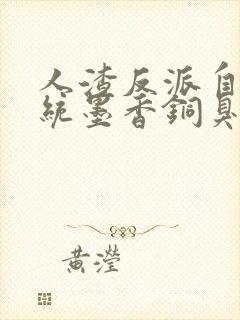 人渣反派自
統墨香銅臭
黃瀅